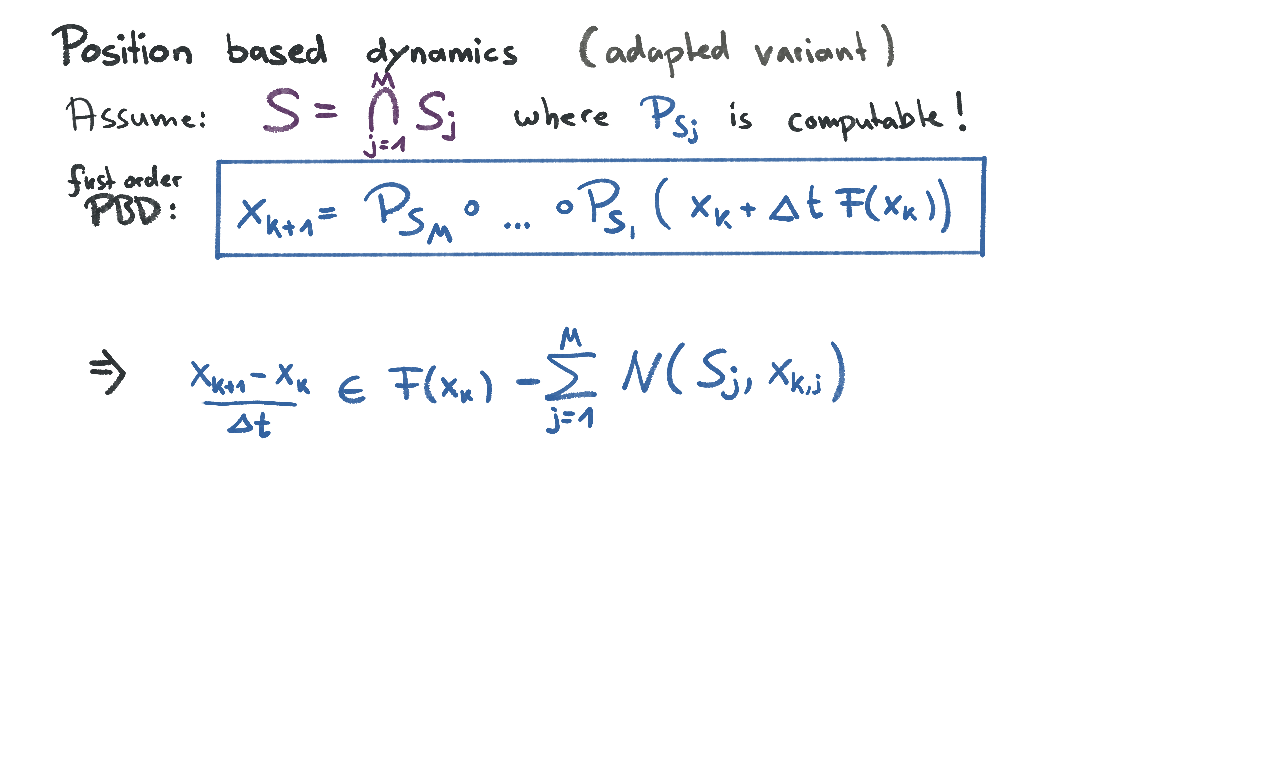 Position based dynamics (adapted variant)
Assume: S = ⋂_{j=1}^{M} S_j where P_{S_j} is computable!
first order
PBD: x_{k+1} = P_{S_M} ∘ ... ∘ P_{S_1} ( x_k + Δt F(x_k))
⇒ \frac{x_{k+1} - x_k}{Δt} ∈ F(x_k) - ∑_{j=1}^{M} N( S_j, x_{k,j})